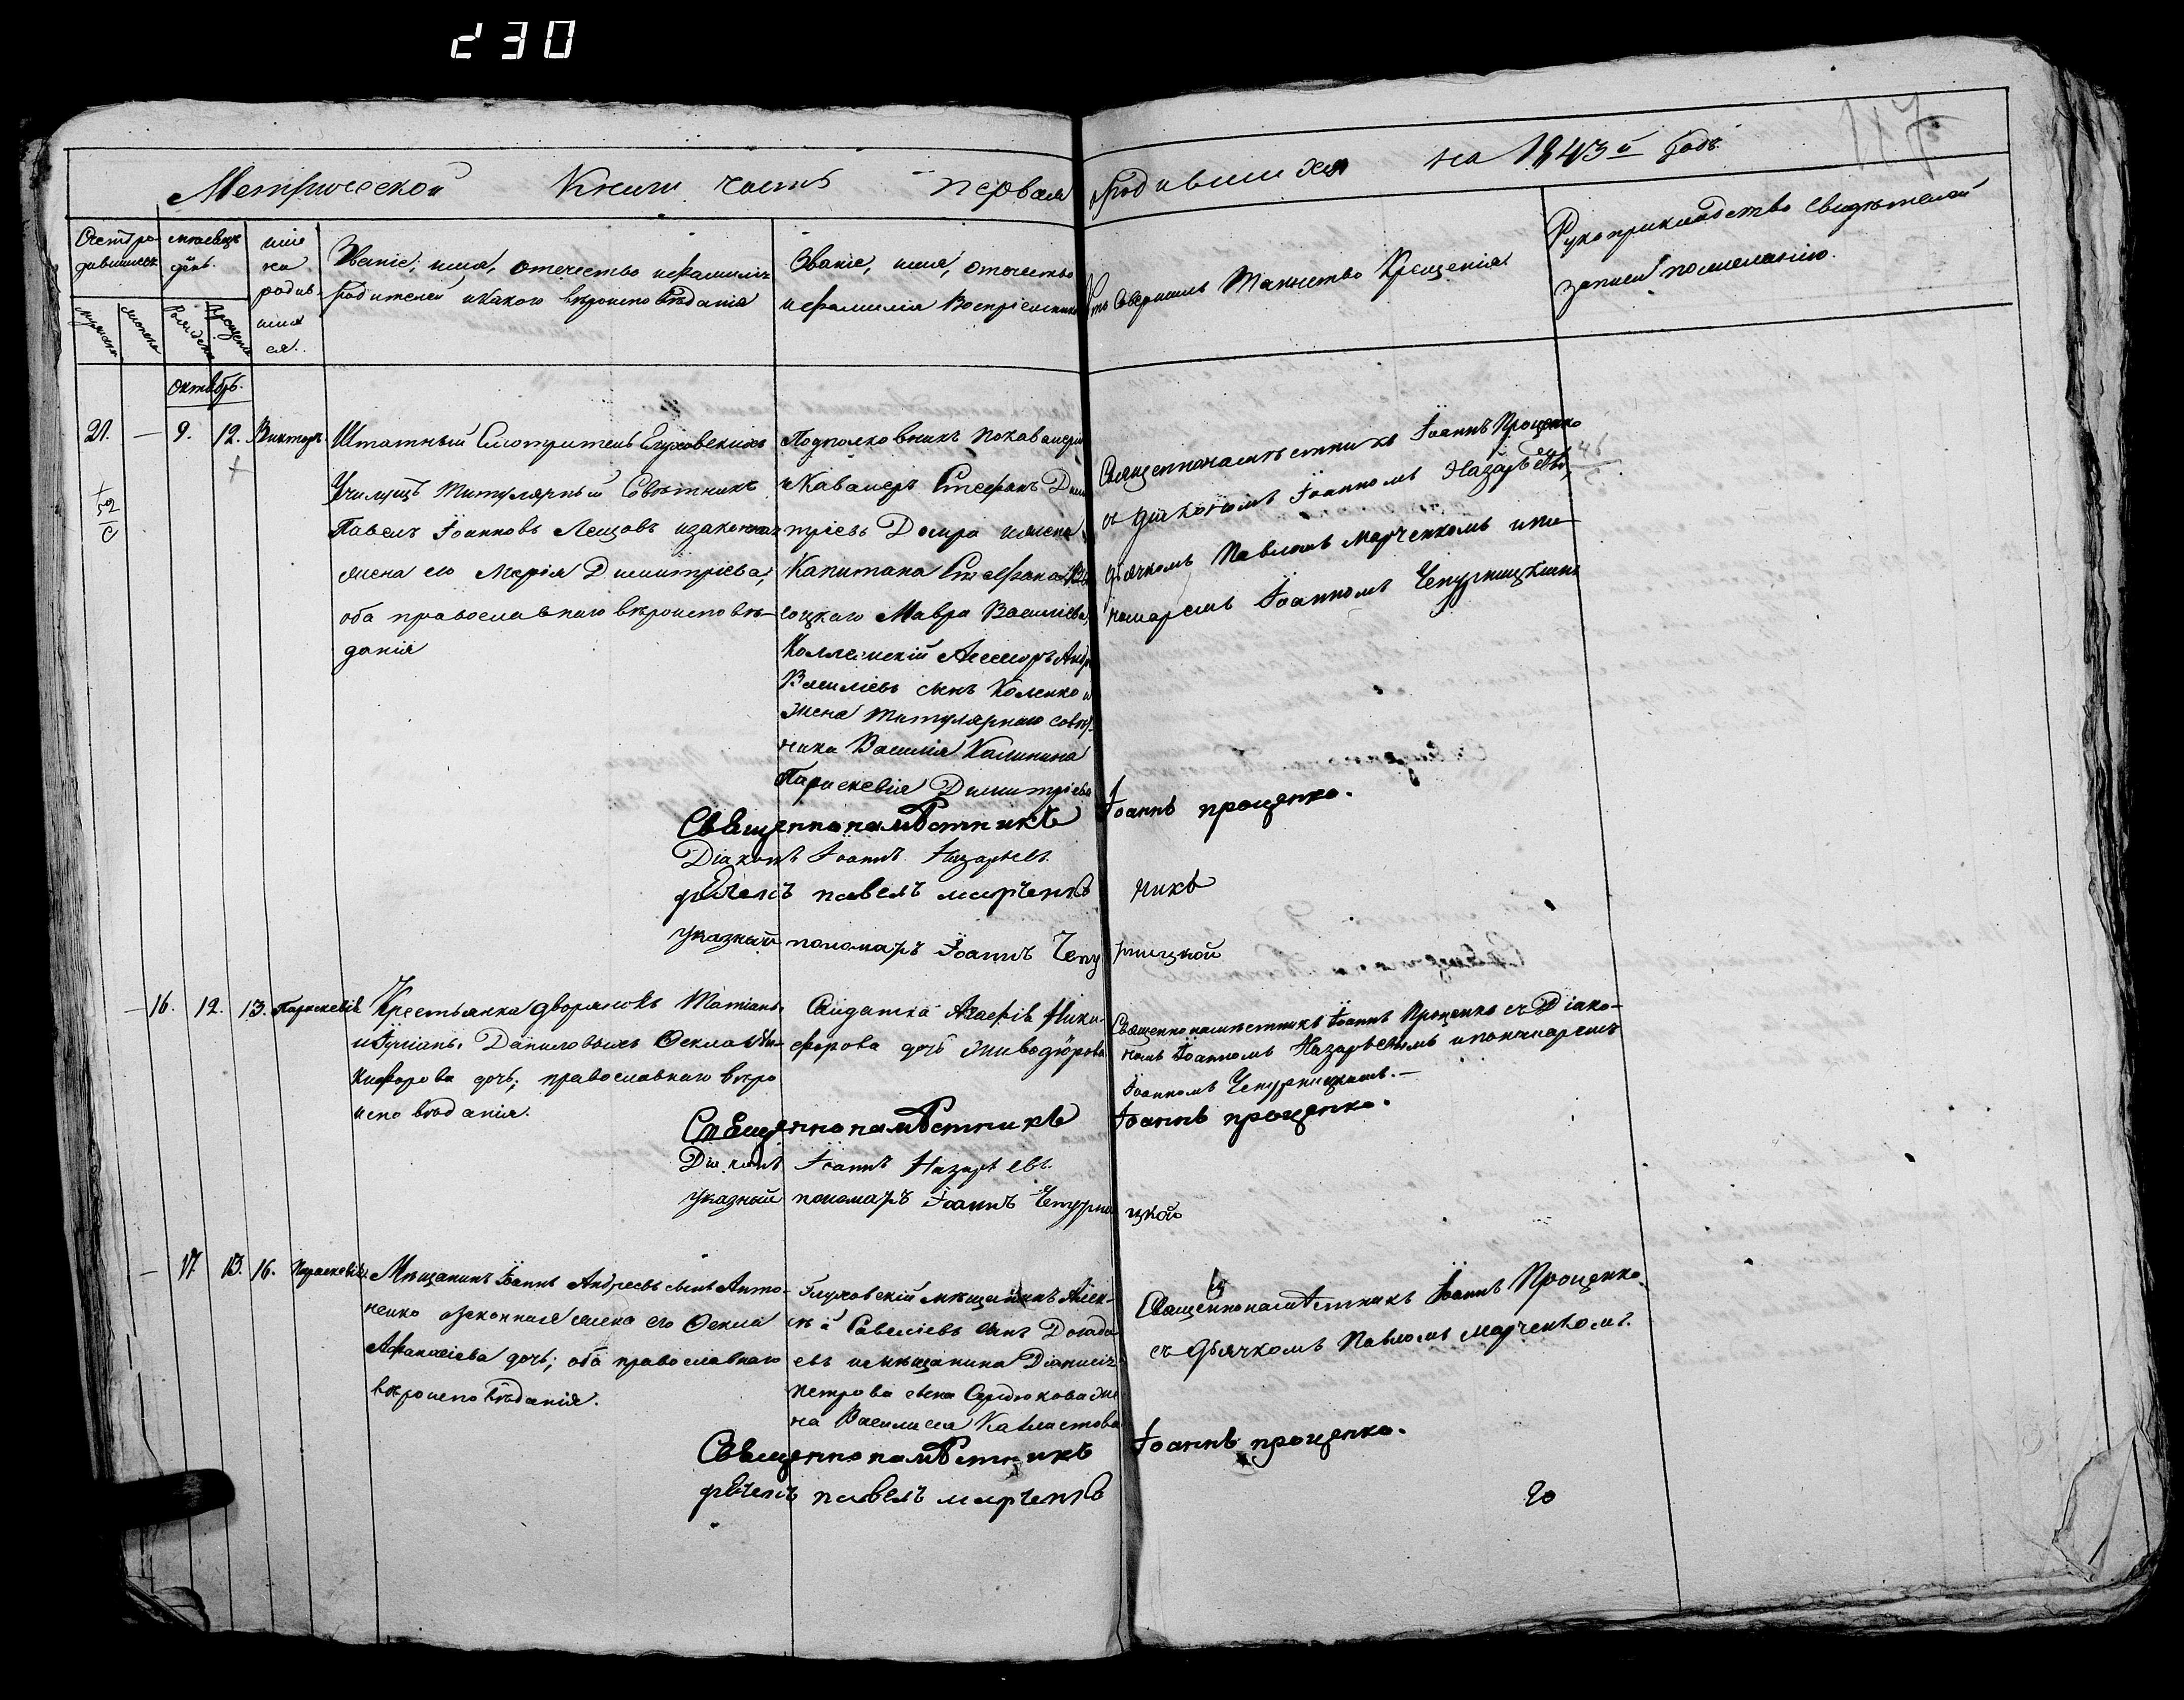 230
117
Метрической Книги часть первая Родившихся на 1843й Годъ
Счетъ родившихся
мѣсяцъ день.
имена родившихся.
Званіе, имя, отечество и фамилія родителей и какого вѣроисповѣданія
Званіе, имя, отечество и фамилія Воспріемниковъ
Кто совершалъ Таинство Крещенія
Рукоприкладство свидѣтелей записи по желанію.
мужеска
женска
Рожденія
Крещенія
Октябрь.
21. — 9. 12. Викторъ.
Штатный Смотритель Глуховскихъ
Училищъ Титулярный Совѣтникъ
Павелъ Іоанновъ Лещовъ и законная
жена его Марія Димитріева,
оба православнаго вѣроисповѣ-
данія
Подполковникъ по кавалеріи
и Кавалеръ Стефанъ Дими
тріевъ и жена
Капитана Стефана
Мавра Василіева,
Коллежскій Ассесоръ
Василіевъ сынъ и
жена титулярнаго совѣт-
ника Василія Калинина
Параскевія Димитріева
Священнонамѣстникъ Іоаннъ Проценко
съ діакономъ Іоанномъ Назарьевымъ,
дьячкомъ Павломъ Марченкомъ и по-
номаремъ Іоанномъ Чепурницкимъ
Священнонамѣстникъ Іоаннъ Проценко.
Діаконъ Іоаннъ Назарьевъ.
дьячекъ павелъ марченко
никъ
указный пономарь Іоаннъ Чепурницкой
— 16. 12. 13. Параскевія
Крестьянка дворянокъ Татіаны
и Іуліаны Даниловыхъ Фекла Ни-
кифорова дочь, православнаго вѣро
исповѣданія.
Солдатка Агафія Ники-
форова дочь
Священнонамѣстникъ Іоаннъ Проценко съ Діако-
номъ Іоанномъ Назарьевымъ и пономаремъ
Іоанномъ Чепурницкимъ.—
Священнонамѣстникъ Іоаннъ Проценко.
Діаконъ Іоаннъ Назарьевъ.
указный пономарь Іоаннъ Чепурницкой
— 17. 13. 16. Параскевія
Мѣщанинъ Іоаннъ Андреевъ сынъ Анто-
ненко и законная жена его Фекла
Афанасіева дочь; оба православнаго
вѣроисповѣданія.
Глуховскій мѣщанинъ Алек-
сѣй Савеліевъ сынъ Догада-
евъ и мѣщанина Діонисія
Петрова сына Сердюкова же-
на Василиса
Священнонамѣстникъ Іоаннъ Проценко
съ Дьячкомъ Павломъ Марченкомъ.
Священнонамѣстникъ Іоаннъ Проценко.
дьячекъ павелъ марченко